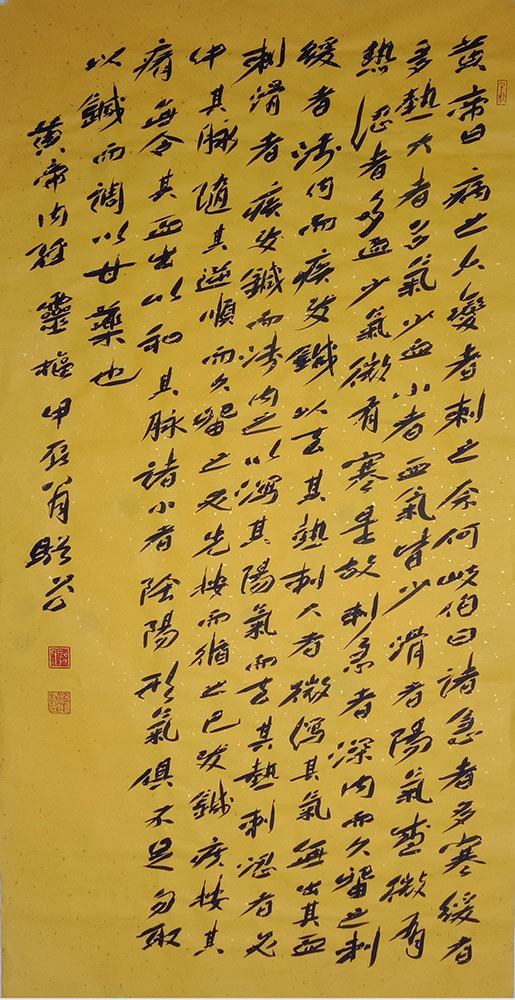 黃帝曰病之六變者刺之奈何岐伯曰諸急者多寒緩者
多熱大者多氣少血小者血氣皆少滑者陽氣盛微有
熱澀者多血少氣微有寒是故刺急者深內而久留之刺
緩者淺內而疾發鍼以去其熱刺大者微瀉其氣無出其血
刺滑者疾發鍼而淺內之以瀉其陽氣而去其熱刺澀者必
中其脉隨其逆順而久留之必先按而循之已發鍼疾按其
痏無令其血出以和其脉諸小者陰陽形氣俱不足勿取
以鍼而調以甘藥也
黃帝內經靈樞甲辰